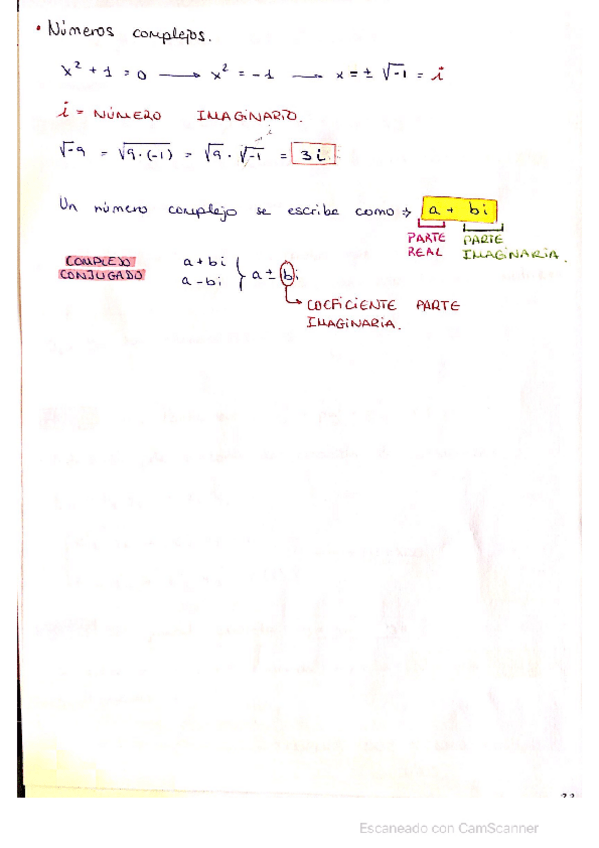 • Números complejos.
x² + 1 = 0 → x² = -1 → x = ± √-1 = i
i = NÚMERO IMAGINARIO.
√-9 = √9·(-1) = √9 · √-1 = 3i
i
Un número complejo se escribe como → a + bi
PARTE REAL PARTE IMAGINARIA.
COMPLEJO CONJUGADO
a + bi
a - bi } a ± bi
COEFICIENTE PARTE
IMAGINARIA.
Escaneado con CamScanner